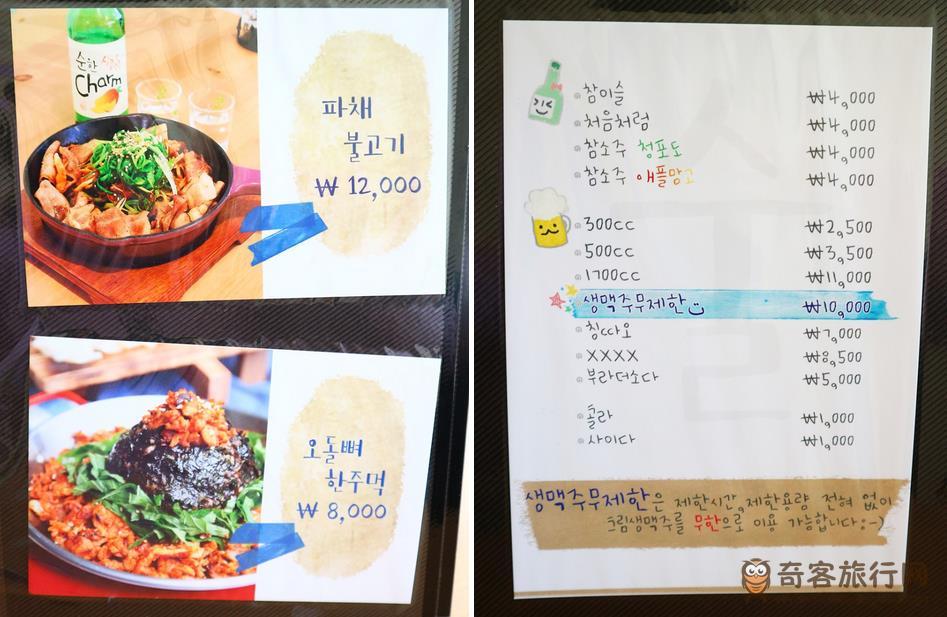 순한
Charm
파채
불고기
₩ 12,000
오돌뼈
한주먹
₩ 8,000
참이슬 ₩4,000
처음처럼 ₩4,000
참소주 청포도 ₩4,000
참소주 애플망고 ₩4,000
300cc ₩2,500
500cc ₩3,500
1700cc ₩11,000
생맥주무제한 ₩10,000
칭따오 ₩7,000
XXXX ₩8,500
부라더소다 ₩5,000
콜라 ₩1,000
사이다 ₩1,000
생맥주무제한은 제한시간, 제한용량 전혀 없이
크림생맥주를 무한으로 이용 가능합니다:-)
奇客旅行网